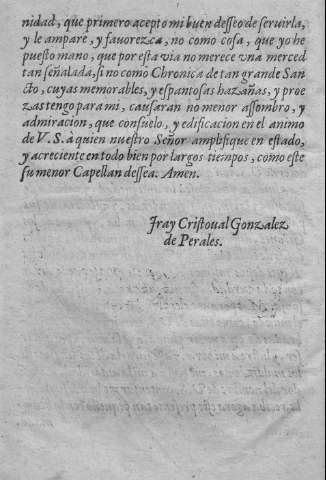 nidad, que primero acepto mi buen desseo de seruirla,
y le ampare, y fauorezca, no como cosa, que yo he
puesto mano, que por esta via no merece vna merced
tan señalada, si no como Chronica de tan grande San
cto, cuyas memorables, y espantosas hazañas, y proe
zas tengo para mi, causaran no menor assombro, y
admiracion, que consuelo, y edificacion en el animo
de V. S. à quien nuestro Señor amplifique en estado,
y acreciente en todo bien por largos tiempos, como este
su menor Capellan dessea. Amen.
Fray Cristoual Gonzalez
de Perales.